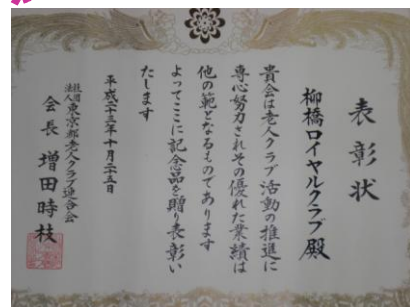 表彰状
柳橋ロイヤルクラブ殿
貴会は老人クラブ活動の推進に
専心努力されその優れた業績は
他の範となるものであります
よってここに記念品を贈り表彰い
たします
平成二十三年十月二十五日
社団法人東京都老人クラブ連合会
会長 増田時枝